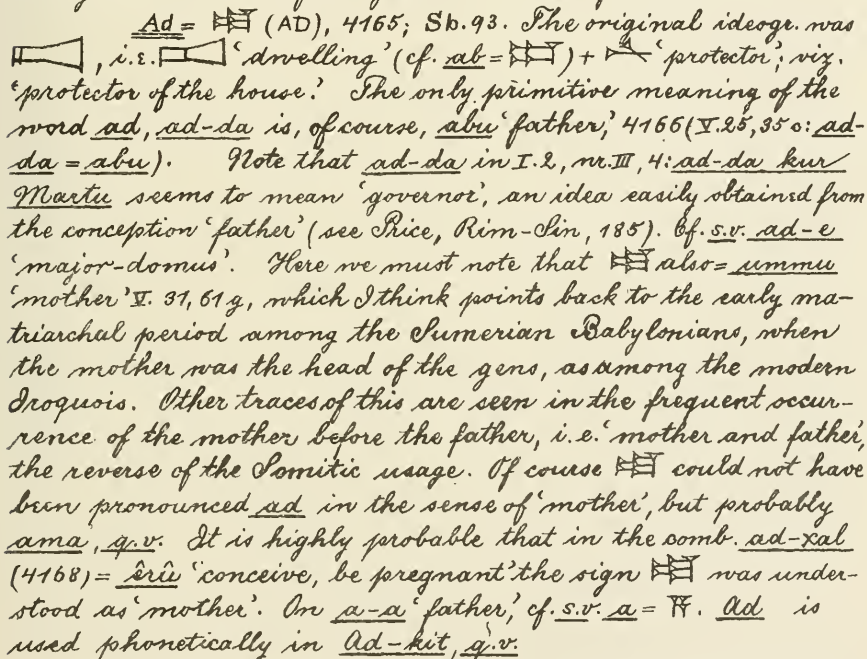 Ad = 𒀜 (AD), 4165; Sb. 93. The original ideogr. was
, i.e. 'dwelling' (cf. ab = 𒀊) + 'protector'; viz.
'protector of the house.' The only primitive meaning of the
word ad, ad-da is, of course, abu 'father,' 4166 (V. 25, 35 c: ad-
da = abu). Note that ad-da in I. 2, nr. III, 4: ad-da kur
Martu seems to mean 'governor', an idea easily obtained from
the conception 'father' (see Price, Rim-Sin, 185). Cf. s.v. ad-e
'major-domus'. Here we must note that 𒀜 also = ummu
'mother' V. 31, 61 g, which I think points back to the early ma-
triarchal period among the Sumerian Babylonians, when
the mother was the head of the gens, as among the modern
Iroquois. Other traces of this are seen in the frequent occur-
rence of the mother before the father, i.e. 'mother and father',
the reverse of the Semitic usage. Of course 𒀜 could not have
been pronounced ad in the sense of 'mother', but probably
ama, q.v. It is highly probable that in the comb. ad-xal
(4168) = êrû 'conceive, be pregnant' the sign 𒀜 was under-
stood as 'mother'. On a-a 'father,' cf. s.v. a = 𒀀. Ad is
used phonetically in Ad-kit, q.v.